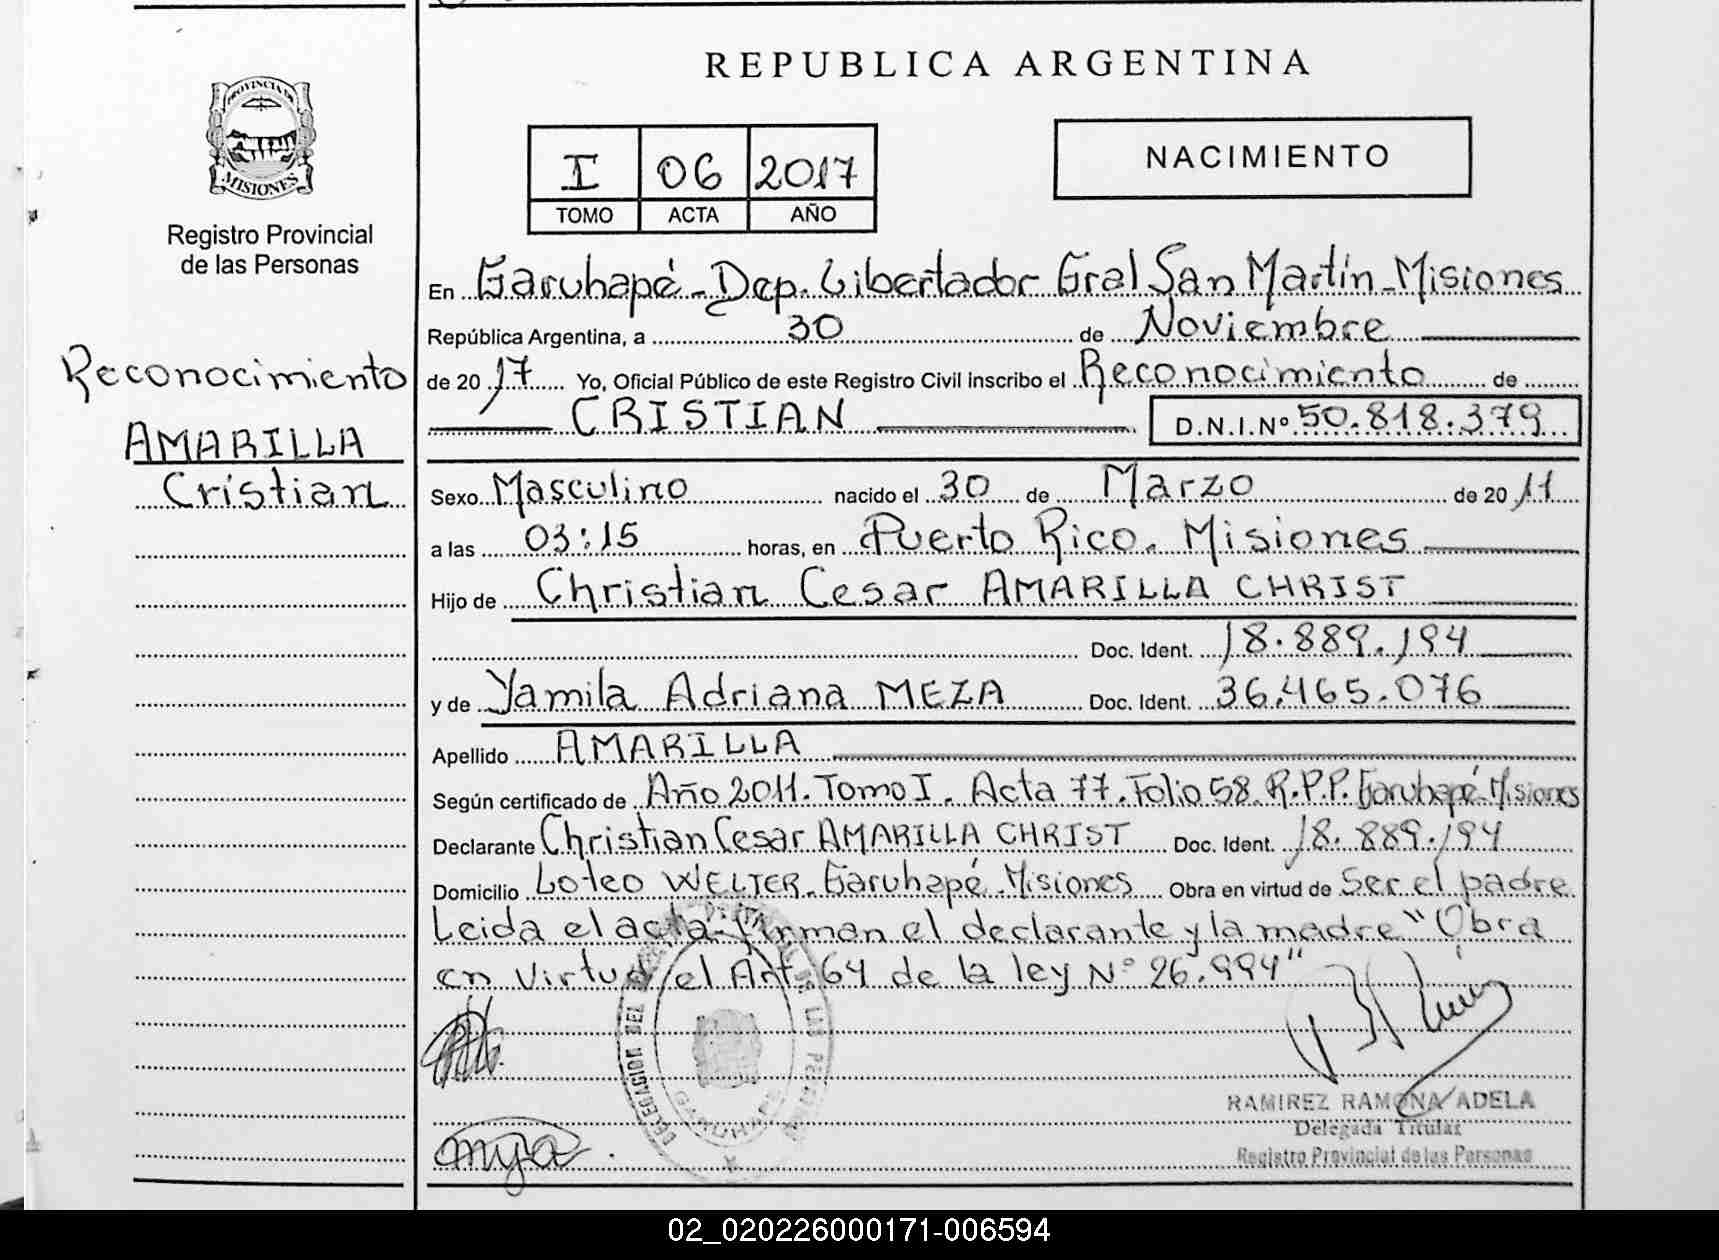 REPUBLICA ARGENTINA
PROVINCIA DE
MISIONES
Registro Provincial
de las Personas
I 06 2017
TOMO ACTA AÑO
NACIMIENTO
Reconocimiento
AMARILLA
Cristian
En Garuhapé - Dep. Libertador Gral San Martín - Misiones
República Argentina, a 30 de Noviembre
de 20 17 Yo, Oficial Público de este Registro Civil inscribo el Reconocimiento de
CRISTIAN D.N.I.Nº 50.818.379
Sexo Masculino nacido el 30 de Marzo de 20 11
a las 03:15 horas, en Puerto Rico. Misiones
Hijo de Christian Cesar AMARILLA CHRIST
Doc. Ident. 18.889.194
y de Yamila Adriana MEZA Doc. Ident. 36.465.076
Apellido AMARILLA
Según certificado de Año 2011. Tomo I. Acta 77. Folio 58. R.P.P. Garuhapé - Misiones
Declarante Christian Cesar AMARILLA CHRIST Doc. Ident. 18.889.194
Domicilio Loteo WELTER - Garuhapé - Misiones Obra en virtud de Ser el padre
Leida el acta. Firman el declarante y la madre "Obra
en virtud el Art. 64 de la ley N° 26.994"
DELEGACION DEL DE LAS
GARUHAPE
RAMIREZ RAMONA ADELA
Delegada Titular
Registro Provincial de las Personas
02_020226000171-006594